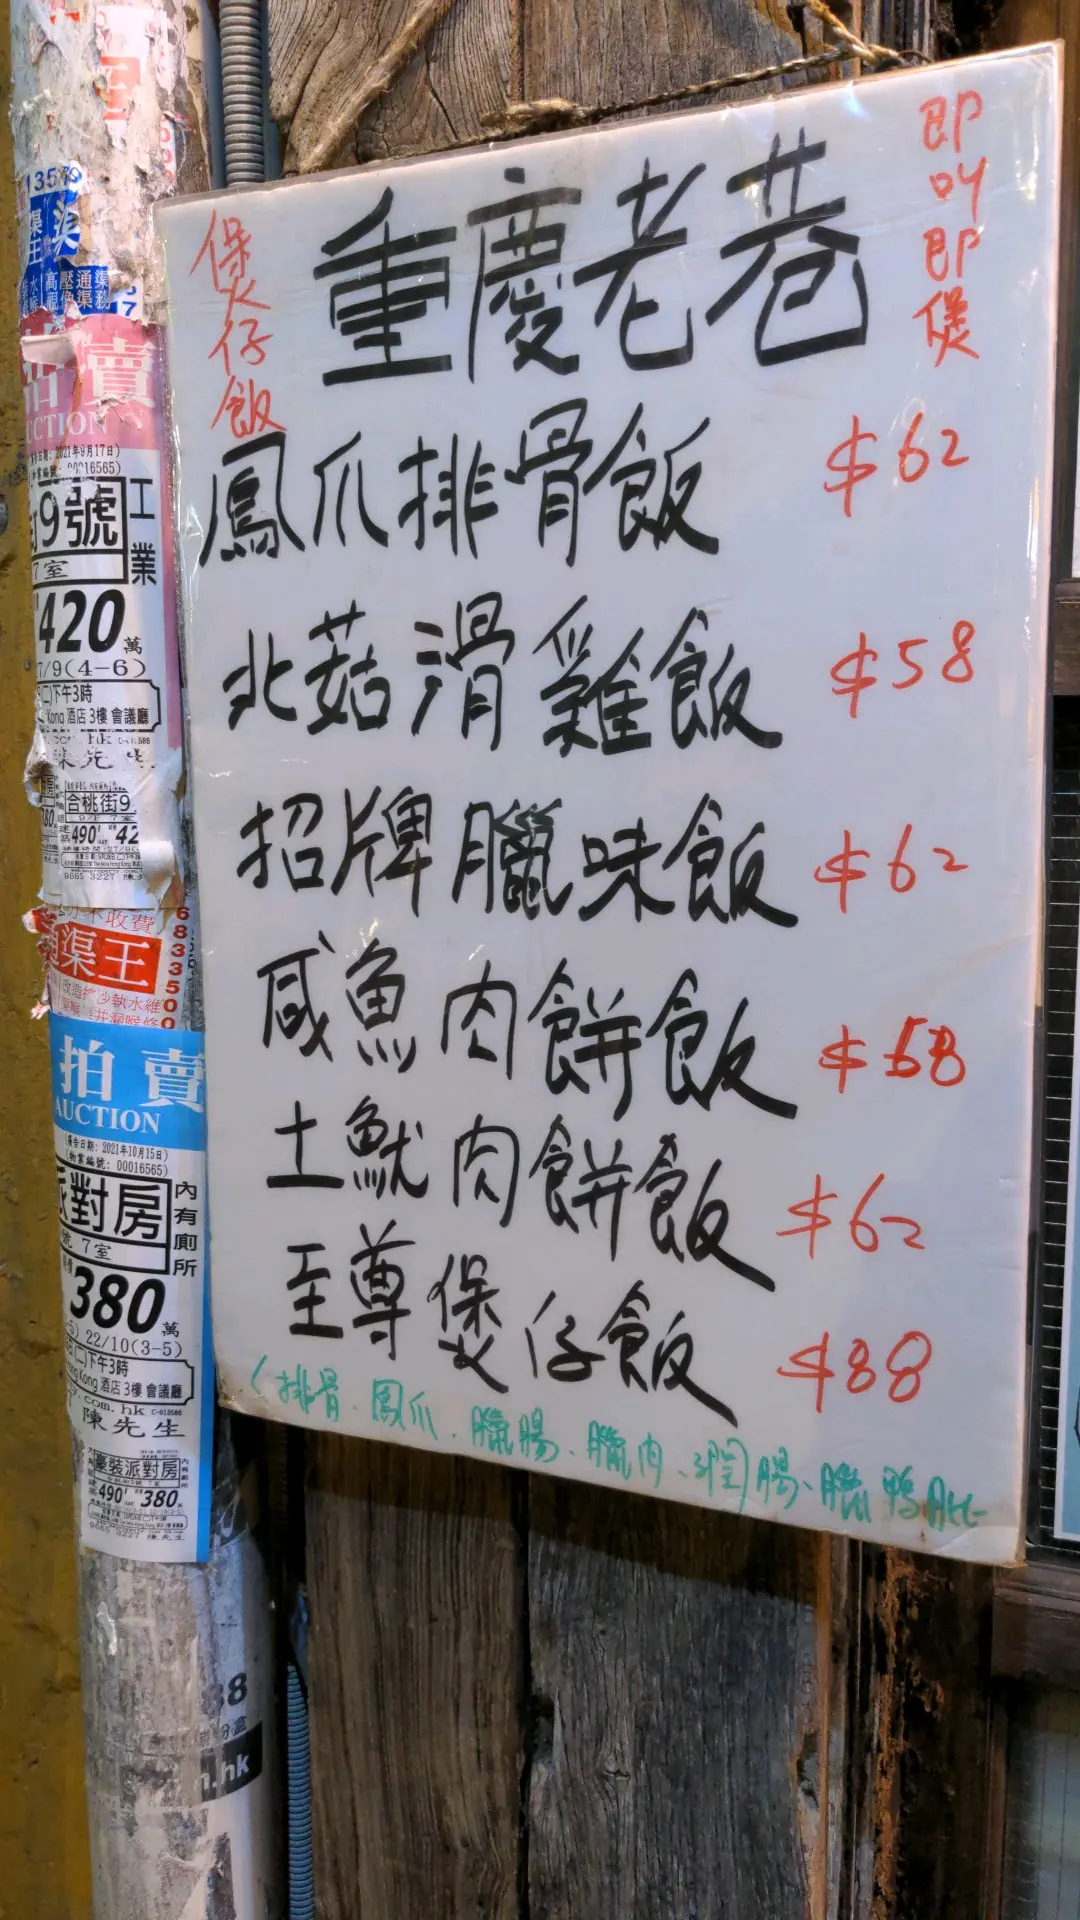 重慶老巷
煲仔飯
即叫即煲
鳳爪排骨飯 $62
北菇滑雞飯 $58
招牌臘味飯 $62
咸魚肉餅飯 $58
土魷肉餅飯 $62
至尊煲仔飯 $88
(排骨、鳳爪、臘腸、臘肉、潤腸、臘鴨
渠王
高壓通渠
拍賣
AUCTION
2021年9月17日)
00016565)
9號
工業
7室
420萬
7/9(4-6)
(二)下午3時
Kong 酒店 3樓 會議廳
合桃街9
9/F 7室
490 42
9665 3227
收費
渠王
拍賣
AUCTION
(廣告日期: 2021年10月15日)
(物業編號: 00016565)
派對房
內有廁所
號 7室
380萬
22/10(3-5)
(二)下午3時
Kong 酒店 3樓 會議廳
.com.hk
陳先生
豪裝派對房
490 380
9665 3227 陳先生